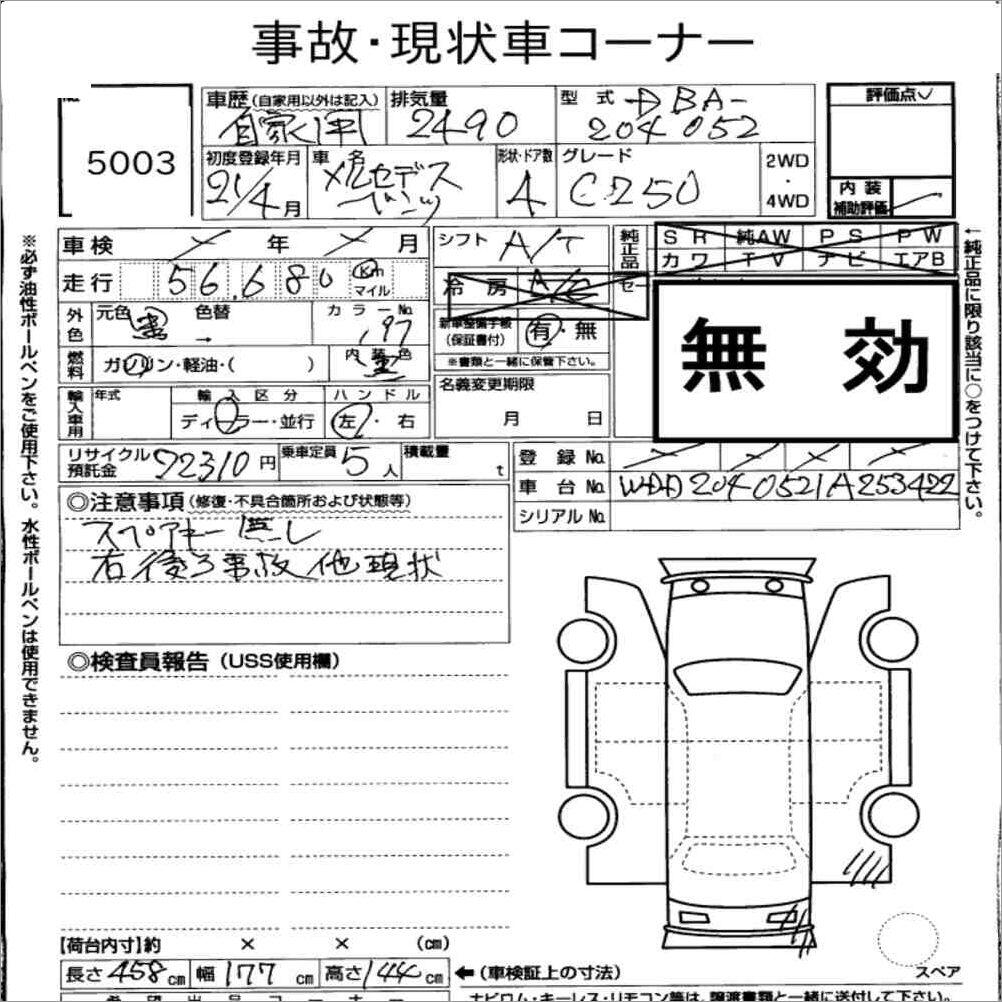 事故・現状車コーナー
5003
車歴(自家用以外は記入)
自家用
排気量
2490
型式
DBA-
204052
評価点
内装
補助評価
初度登録年月
21/4月
車名
メルセデス
ベンツ
形状・ドア数
4
グレード
C250
2WD
・
4WD
車検 年 月
走行 56,680 Km
マイル
シフト A/T
冷房 A/C
純正品
SR 純AW PS PW
カワ TV ナビ エアB
無効
外色
元色 黒
色替
カラーNo.
197
新車整備手帳
(保証書付)
有・無
※書類と一緒に保管下さい。
燃料
ガソリン・軽油・( )
内装色
黒
名義変更期限
月 日
輸入車用
年式
輸入区分
ディーラー・並行
ハンドル
左・右
リサイクル
預託金
22310円
乗車定員 5人
積載量 t
登録No.
車台No. WDD2040521A253422
シリアルNo.
◎注意事項(修復・不具合箇所および状態等)
スペアキー無し
右後ろ事故他現状
◎検査員報告(USS使用欄)
【荷台内寸】約 × × (cm)
長さ458cm 幅177cm 高さ144cm
←(車検証上の寸法)
スペア
※必ず油性ボールペンをご使用下さい。水性ボールペンは使用できません。
←純正品に限り該当に○をつけて下さい。